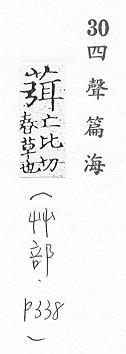 30四聲篇海
葞亡比切
春草也
(艸部·P338)